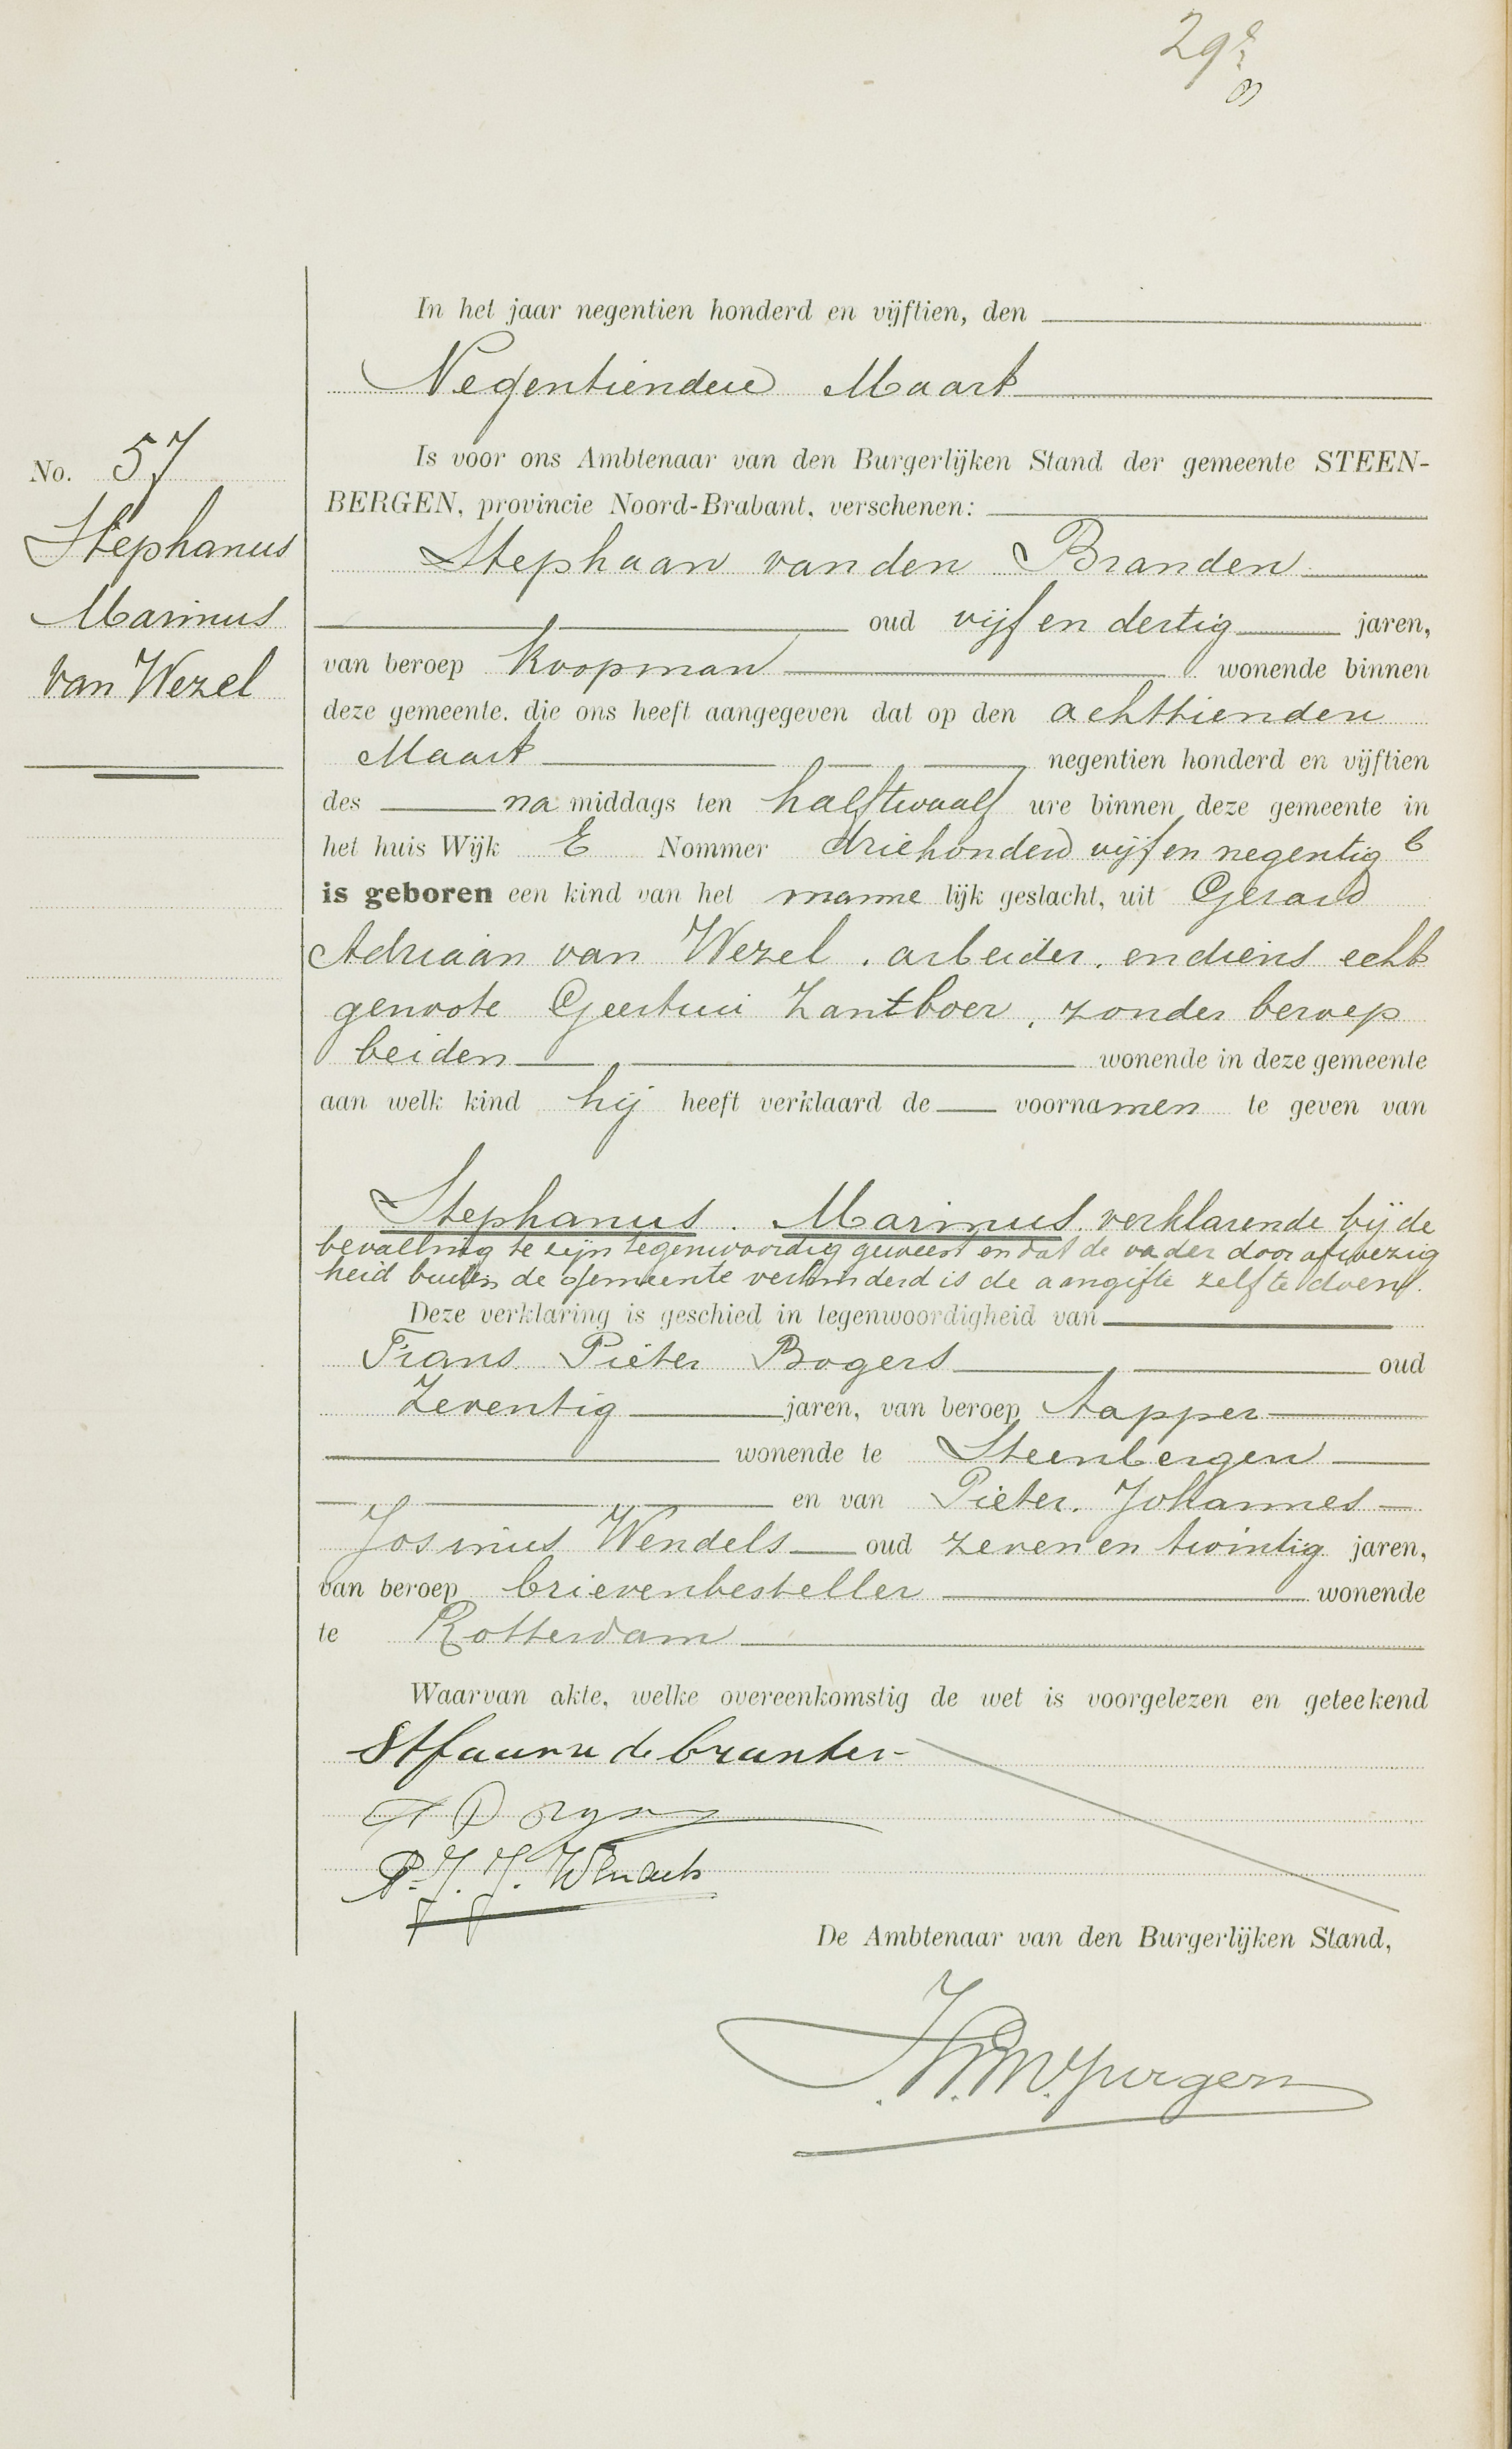 29
In het jaar negentien honderd en vijftien, den
Negentienden Maart
No. 57
Is voor ons Ambtenaar van den Burgerlijken Stand der gemeente STEEN-
BERGEN, provincie Noord-Brabant, verschenen:
Stephanus
Marinus
van Wezel
Stephaan van den Branden
oud vijf en dertig jaren,
van beroep Koopman wonende binnen
deze gemeente. die ons heeft aangegeven dat op den achttienden
Maart negentien honderd en vijftien
des na middags ten halftwaalf ure binnen deze gemeente in
het huis Wijk E Nommer driehonderd vijf en negentig b
is geboren een kind van het manne lijk geslacht, uit Gerard
Adriaan van Wezel, arbeider, en diens echt
genoote Geertrui Zantboer, zonder beroep
beiden wonende in deze gemeente
aan welk kind hij heeft verklaard de voornamen te geven van
Stephanus. Marinus. verklarende bij de
bevalling te zijn tegenwoordig geweest en dat de vader door afwezig
heid buiten de Gemeente verhinderd is de aangifte zelf te doen.
Deze verklaring is geschied in tegenwoordigheid van
Frans Pieter Bogers oud
Zeventig jaren, van beroep tapper
wonende te Steenbergen
en van Pieter. Johannes
Josinus Wendels oud zeven en twintig jaren,
van beroep brievenbesteller wonende
te Rotterdam
Waarvan akte, welke overeenkomstig de wet is voorgelezen en geteekend
P. J. J. Wendels
De Ambtenaar van den Burgerlijken Stand,